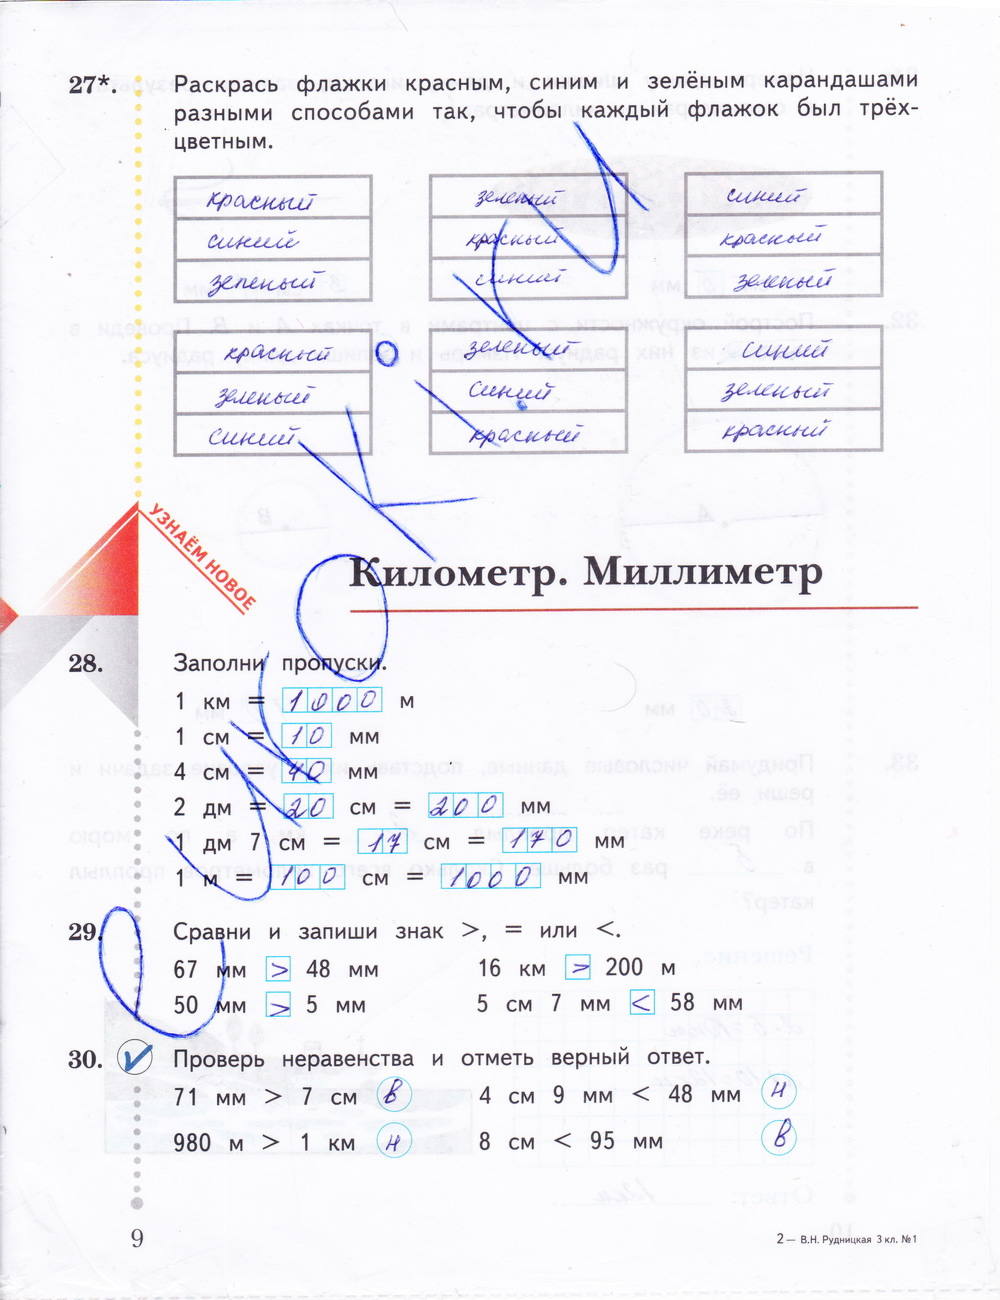 27*. Раскрась флажки красным, синим и зелёным карандашами
разными способами так, чтобы каждый флажок был трёх-
цветным.
красный зеленый синий
синий красный красный
зеленый синий зеленый
красный зеленый синий
зеленый синий зеленый
синий красный красный
УЗНАЁМ НОВОЕ
Километр. Миллиметр
28. Заполни пропуски.
1 км = 1000 м
1 см = 10 мм
4 см = 40 мм
2 дм = 20 см = 200 мм
1 дм 7 см = 17 см = 170 мм
1 м = 100 см = 1000 мм
29. Сравни и запиши знак >, = или <.
67 мм > 48 мм 16 км > 200 м
50 мм > 5 мм 5 см 7 мм < 58 мм
30. Проверь неравенства и отметь верный ответ.
71 мм > 7 см в 4 см 9 мм < 48 мм н
980 м > 1 км н 8 см < 95 мм в
9
2 — В.Н. Рудницкая 3 кл. №1